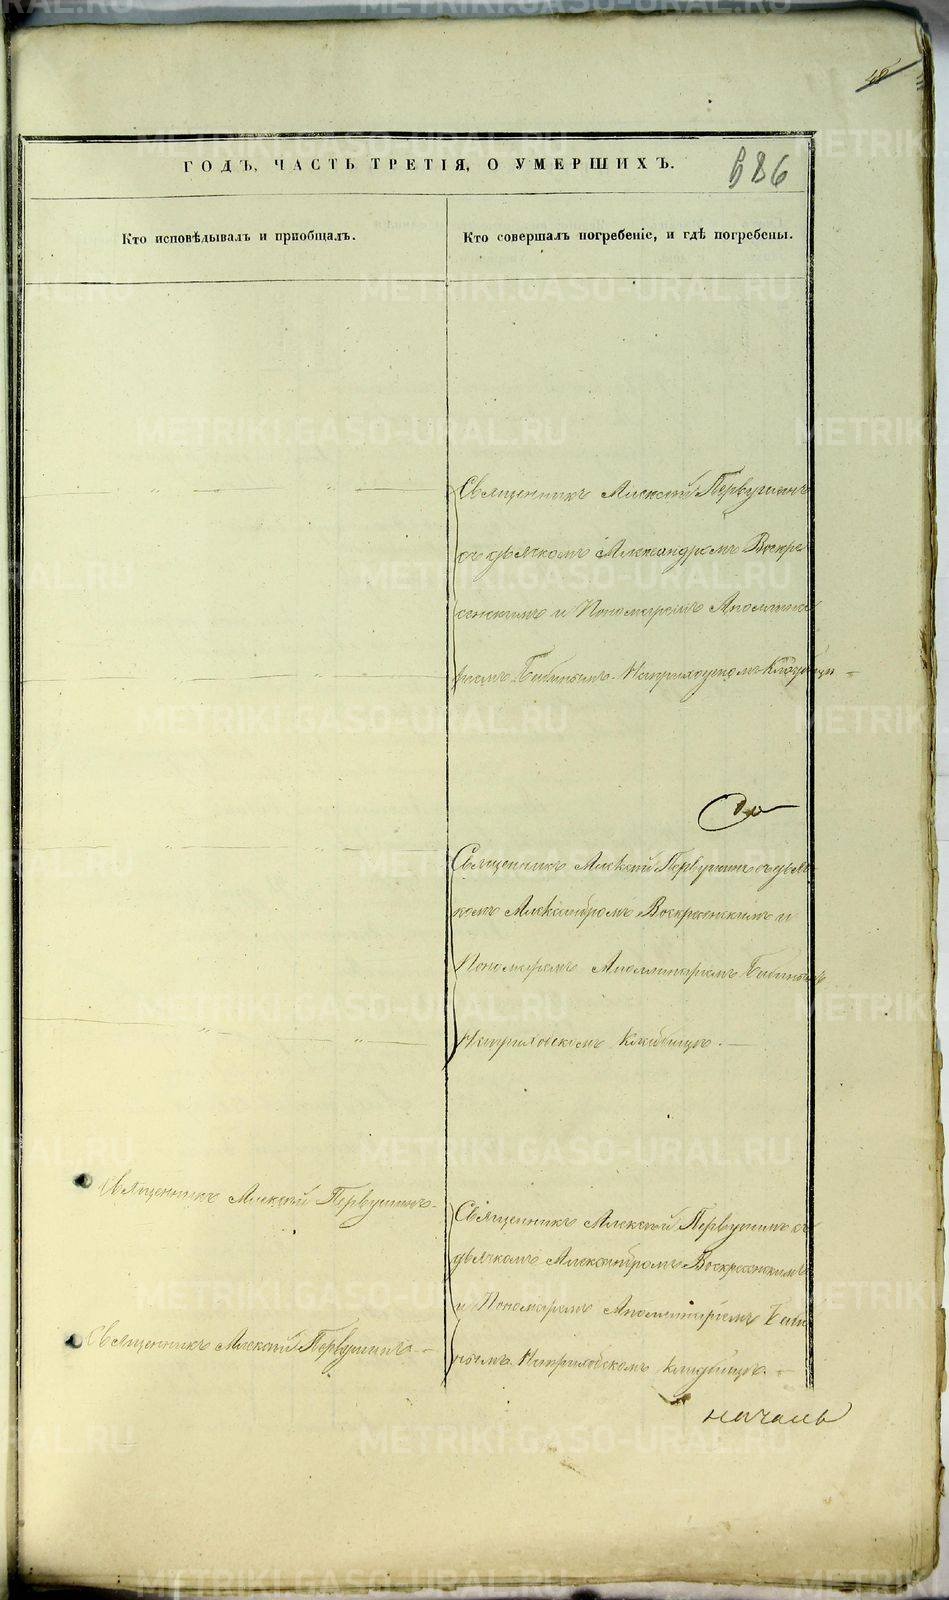 48
ГОДЪ, ЧАСТЬ ТРЕТІЯ, О УМЕРШИХЪ.
886
Кто исповѣдывалъ и пріобщалъ.
Кто совершалъ погребеніе, и гдѣ погребены.
Священникъ Алексѣй Первушинъ
съ дьячкомъ Александромъ Воскре
сенскимъ и Пономаремъ Аполлина
ріемъ Бибинымъ. На приходскомъ кладбищѣ
Священникъ Алексѣй Первушинъ съ дьяч
комъ Александромъ Воскресенскимъ и
Пономаремъ Аполлинаріемъ Бибинымъ
На приходскомъ кладбищѣ.
Священникъ Алексѣй Первушинъ
Священникъ Алексѣй Первушинъ съ
дьячкомъ Александромъ Воскресенскимъ
и Пономаремъ Аполлинаріемъ Биби
Священникъ Алексѣй Первушинъ
нымъ. На приходскомъ кладбищѣ.
METRIKI.GASO-URAL.RU